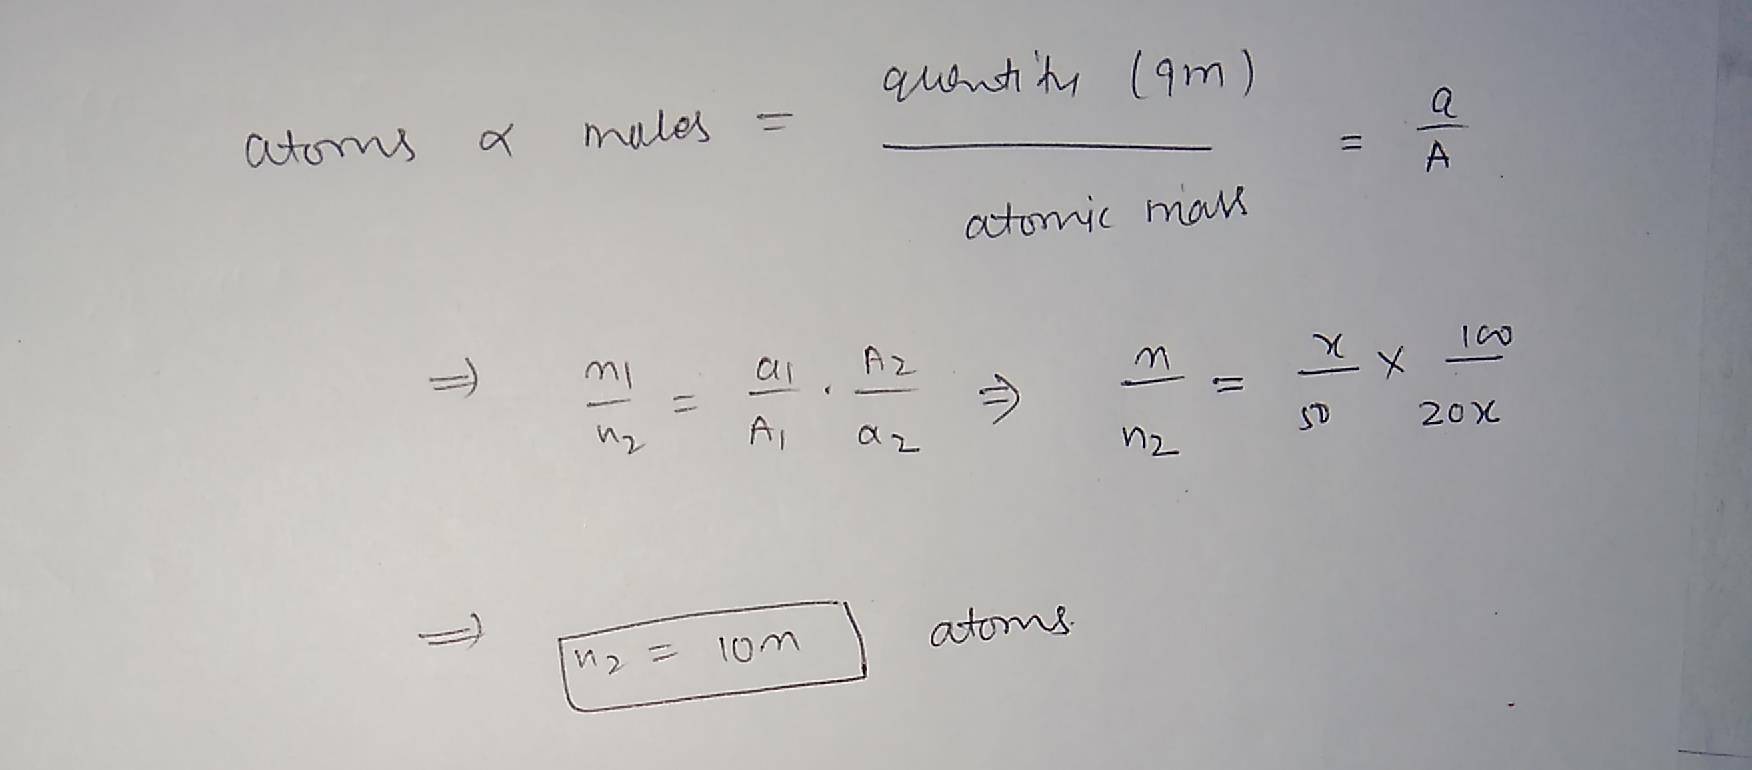 atoms α moles = quantity (gm) / atomic mass = a / A
⇒ n1 / n2 = a1 / A1 . A2 / a2 ⇒ n / n2 = x / 50 × 100 / 20x
⇒ n2 = 10n atoms.